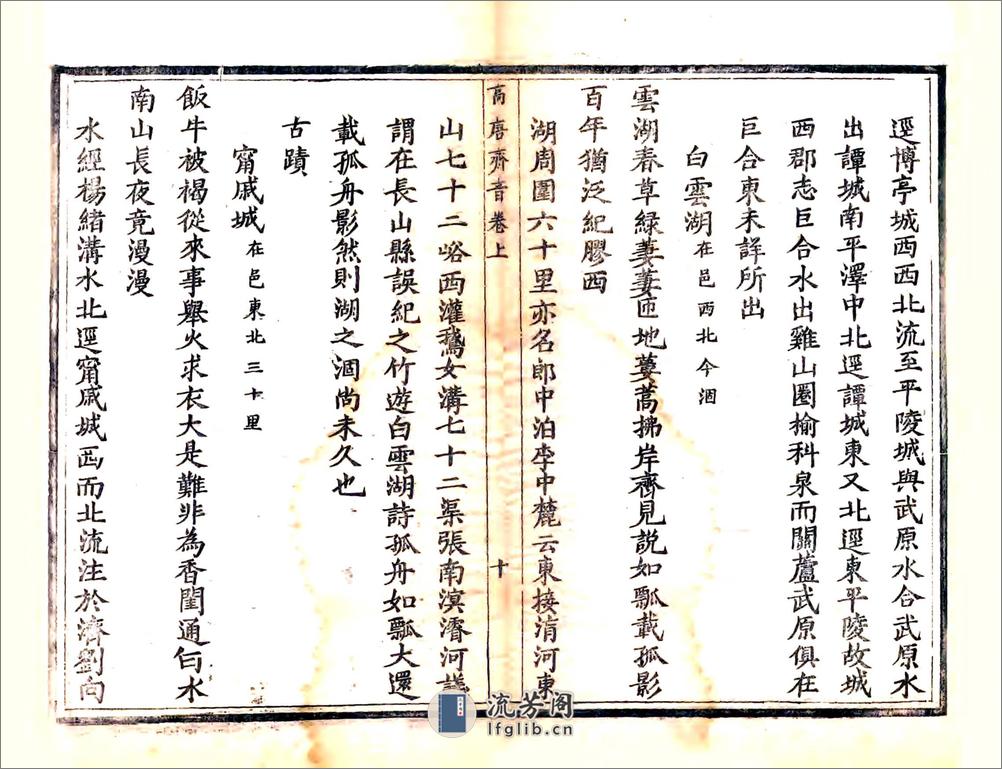 逕博亭城西西北流至平陵城與武原水合武原水
出譚城南平澤中北逕譚城東又北逕東平陵故城
西郡志巨合水出雞山圈榆科泉而關蘆武原俱在
巨合東未詳所出
白雲湖在邑西北今涸
雲湖春草綠萋萋匝地蔞蒿拂岸齊見説如瓢載孤影
百年猶泛紀膠西
湖周圍六十里亦名郎中泊李中麓云東接淯河東
高唐齊音卷上
十
山七十二峪西灌鵞女溝七十二渠張南溟濬河議
謂在長山縣誤紀之竹遊白雲湖詩孤舟如瓢大還
載孤舟影然則湖之涸尚未久也
古蹟
甯戚城在邑東北三十里
飯牛被褐從來事舉火求衣大是難非為香閨通白水
南山長夜竟漫漫
水經楊緒溝水北逕甯戚城西而北流注於濟劉向
流芳阁
lfglib.cn